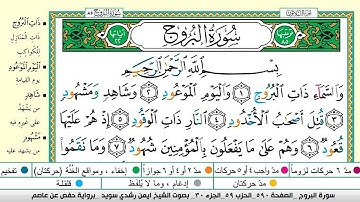 سُورَةُ الْبُرُوجِ
بِسْمِ اللَّهِ الرَّحْمَٰنِ الرَّحِيمِ
وَالسَّمَاءِ ذَاتِ الْبُرُوجِ ١ وَالْيَوْمِ الْمَوْعُودِ ٢ وَشَاهِدٍ وَمَشْهُودٍ
٣ قُتِلَ أَصْحَابُ الْأُخْدُودِ ٤ النَّارِ ذَاتِ الْوَقُودِ ٥ إِذْ هُمْ عَلَيْهَا
قُعُودٌ ٦ وَهُمْ عَلَىٰ مَا يَفْعَلُونَ بِالْمُؤْمِنِينَ شُهُودٌ ٧
ذَاتِ الْبُرُوجِ
ذات المنازل
للكواكب
الْيَوْمِ الْمَوْعُودِ
يوم القيامة
شَاهِدٍ
من يشهد
على غيره فيه
مَشْهُودٍ
من يشهد عليه
مدّ ٦ حركات لزوماً
مدّ ٢ أو ٤ أو ٦ جوازاً
إخفاء، ومواقع الغُنَّة (حركتان)
تفخيم
مدّ حركتان
إدغام، وما لا يُلفَظ
قلقلة
سورة البروج . الصفحة ٥٩٠ . الحزب ٥٩ . الجزء ٣٠ . بصوت الشيخ أيمن رشدي سويد . برواية حفص عن عاصم